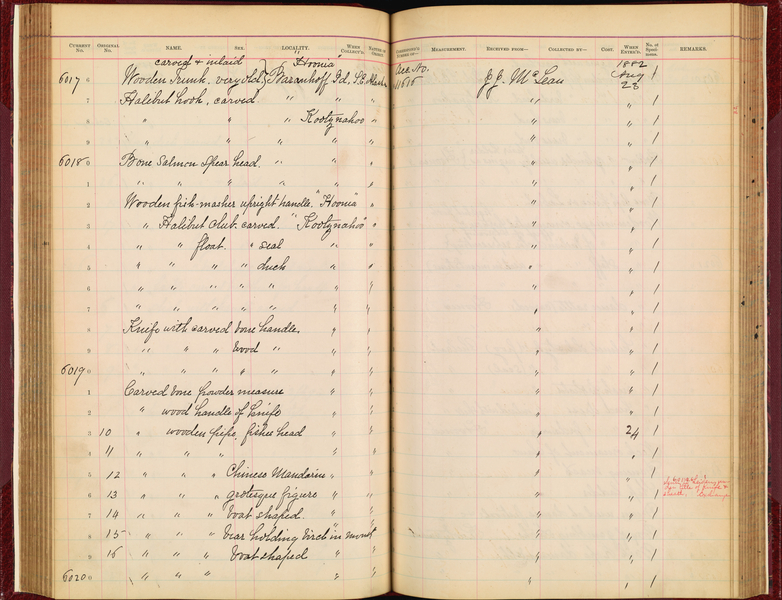 CURRENT No. ORIGINAL No. NAME. SEX. LOCALITY. WHEN COLLECT'D. NATURE OF OBJECT. MEASUREMENT. RECEIVED FROM— COLLECTED BY— COST. WHEN ENTER'D. No. of Speci-mens. REMARKS.
carved & inlaid "Hoonia" 1882
6017 6 Wooden Trunk. very old Baranhoff Id. S.E. Alaska Acc. No. 11615 J.J. McLean Aug 23 1
7 Halibut hook, carved. " " " " " 1
8 " " " Kootznahoo " " " 1
9 " " " " " " " 1
6018 0 Bone Salmon Spear head. " " " " " 1
1 " " " " " " " " 1
2 Wooden fish-masher upright handle. "Hoonia" " " " 1
3 " Halibut Club. carved. "Kootznahoo" " " " 1
4 " " float. " seal " " " " 1
5 " " " " duck " " " " 1
6 " " " " " " " " " 1
7 " " " " " " " " " 1
8 Knife with carved bone handle. " " " " 1
9 " " " " wood " " " " " 1
6019 0 " " " " " " " " " " 1
1 Carved bone powder measure " " " " 1
2 " wood handle of knife " " " " 1
3 10 " wooden pipe. fishes head " " " 24 1
4 11 " " " " " " " " " 1
5 12 " " " Chinese Mandarin " " " " 1
6 13 " " " grotesque figure " " " " 1
7 14 " " " boat shaped. " " " " 1
8 15 " " " bear holding bird in mouth " " " 1
9 16 " " " boat shaped " " " " 1
6020 0 " " " " " " " 1